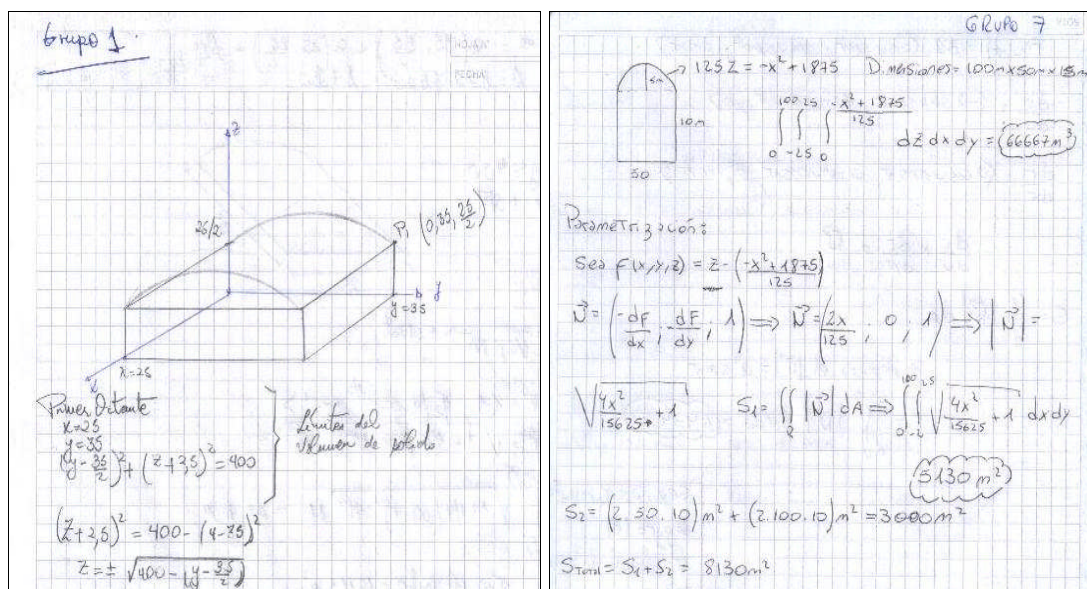 Grupo 1
z
25/2
P₁ (0,35, 25/2)
y
y=35
x
x=25
Primer Octante
x=25
y=35
(y - 35/2)² + (z+2,5)² = 400
Límites del
Volumen de sólido
(z+2,5)² = 400 - (y-
z = ± √400 - (y - 35/2)
GRUPO 7
5m
125 Z = -x² + 1875
Dimesiones = 100m x 50m x 15m
10m
50
∫₀¹⁰⁰ ∫₋₂₅²⁵ ∫₀^((-x²+1875)/125) dz dx dy = 66667m³
Parametrización:
Sea f(x,y,z) = z - (-x²+1875 / 125)
N⃗ = (-dF/dx ; -dF/dy ; 1) ⟹ N⃗ = (2x/125 ; 0 , 1) ⟹ |N⃗| =
√(4x²/15625 + 1)
S₁ = ∬_R |N⃗| dA ⟹ ∫₀¹⁰⁰ ∫₋₂²⁵ √(4x²/15625 + 1) dx dy
5130 m²
S₂ = (2.50.10) m² + (2.100.10) m² = 3000m²
S_Total = S₁ + S₂ = 8130m²